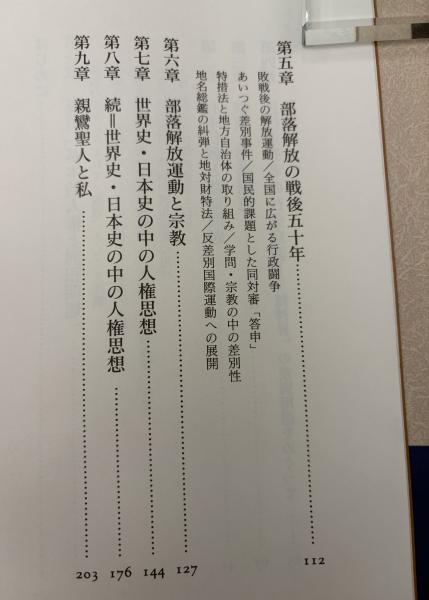 第五章　部落解放の戦後五十年……………………112
敗戦後の解放運動／全国に広がる行政闘争
あいつぐ差別事件／国民的課題とした同対審「答申」
特措法と地方自治体の取り組み／学問・宗教の中の差別性
地名総鑑の糾弾と地対財特法／反差別国際運動への展開
第六章　部落解放運動と宗教……………………127
第七章　世界史・日本史の中の人権思想……………………144
第八章　続＝世界史・日本史の中の人権思想……………………176
第九章　親鸞聖人と私……………………203